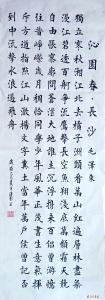 沁園春·長沙 毛澤東
獨立寒秋湘江北去橘子洲頭看萬山紅遍層林盡染
漫江碧透百舸爭流鷹擊長空魚翔淺底萬類霜天競
自由悵寥廓問蒼茫大地誰主沉浮攜來百侶曾遊憶
往昔崢嶸歲月稠恰同學少年風華正茂書生意氣揮
斥方遒指點江山激揚文字糞土當年萬戶侯曾記否
到中流擊水浪遏飛舟